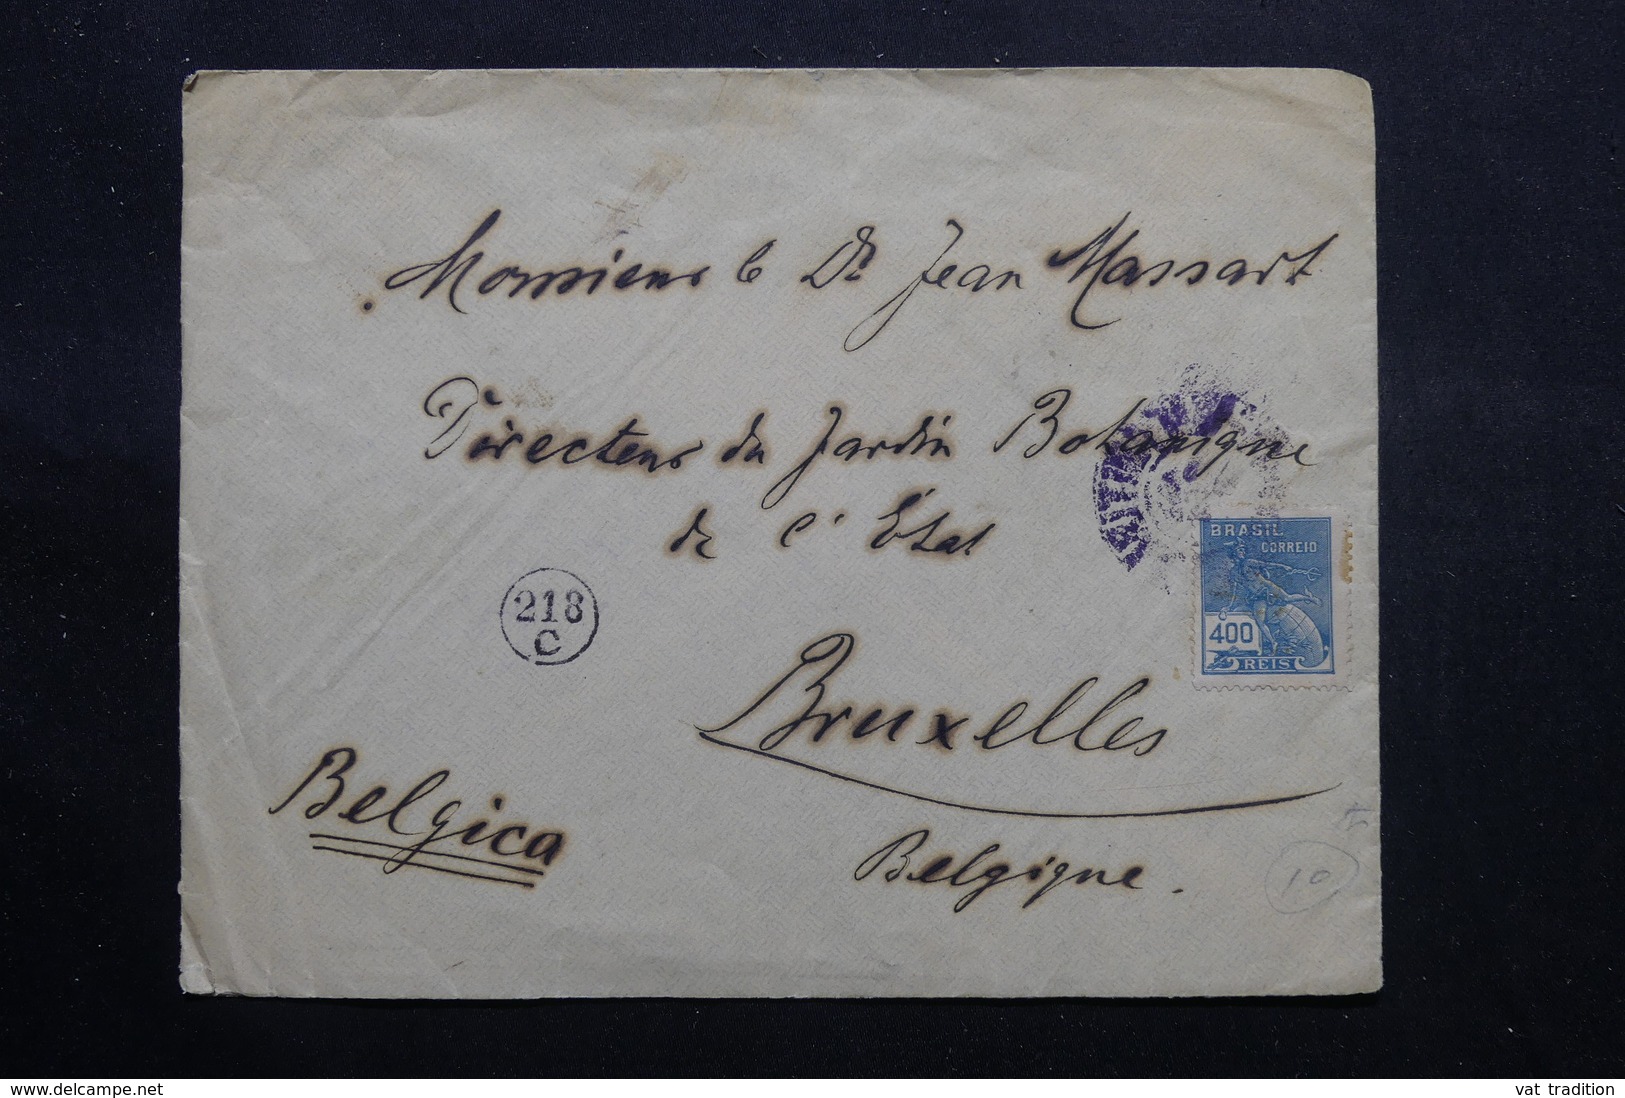 Monsieur le Dr Jean Massart
Directeur du Jardin Botanique
de l'État
BRASIL
CORREIO
400
REIS
218
C
Bruxelles
Belgica
Belgique.
10
www.delcampe.net
vat tradition